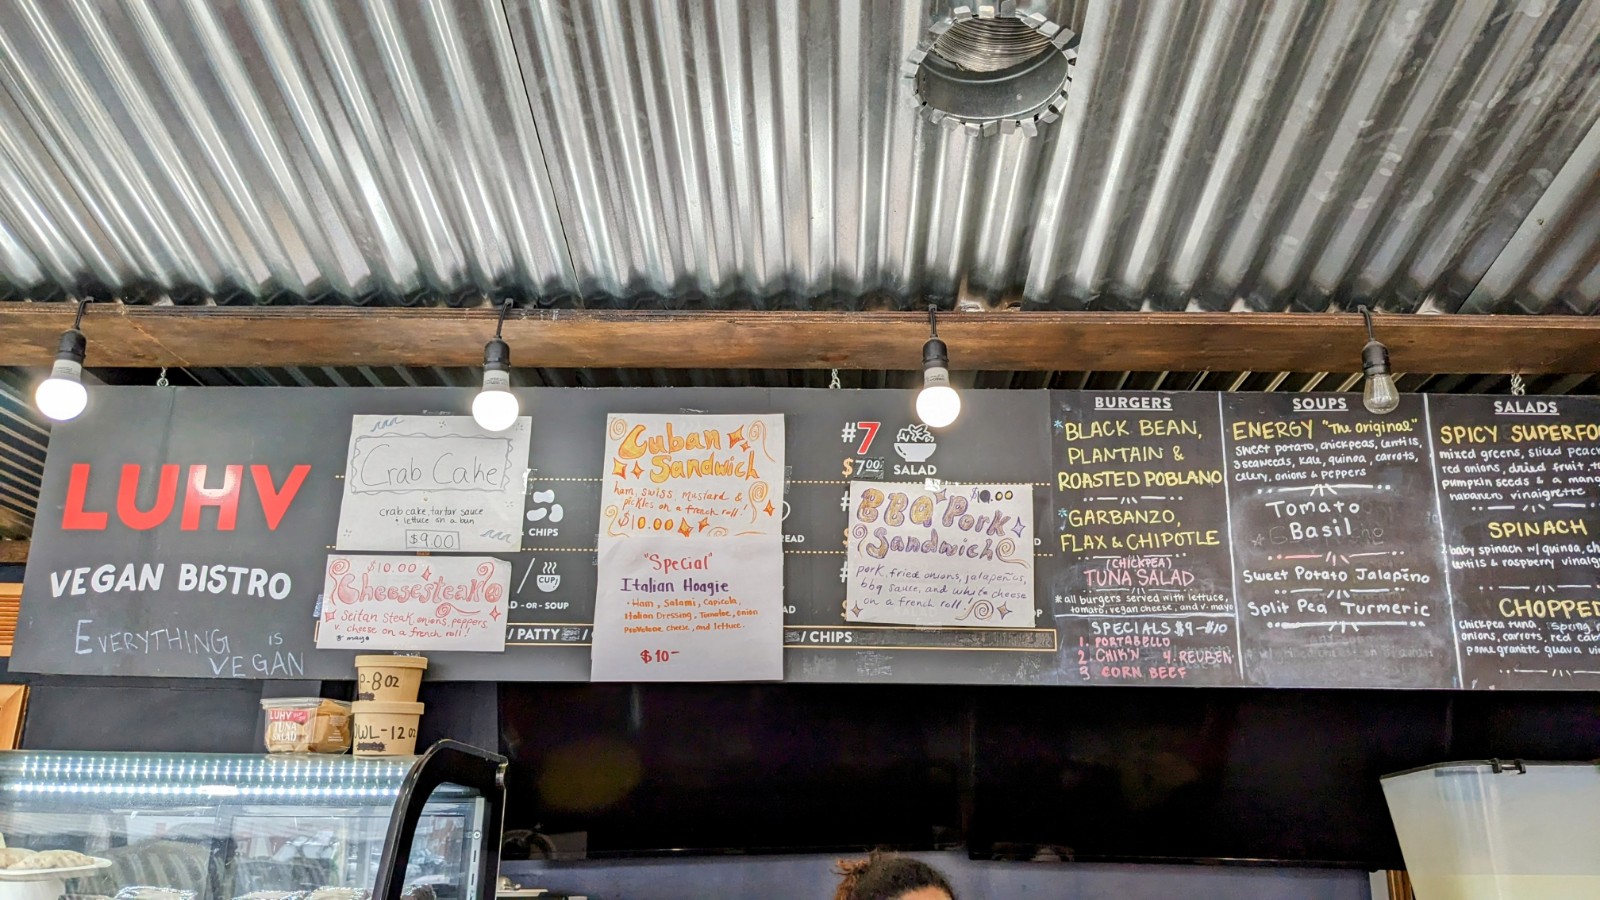 LUHV
VEGAN BISTRO
EVERYTHING IS
VEGAN
Crab Cake
crab cake, tartar sauce
+ lettuce on a bun
$9.00
$10.00
Cheesesteak
Seitan steak, onions, peppers
cheese on a french roll!
CHIPS
CUP
- OR - SOUP
/ PATTY
Cuban
Sandwich
ham, swiss, mustard &
pickles on a french roll!
$10.00
"Special"
Italian Hoagie
• Ham, Salami, Capicola,
Italian Dressing, Tomatoe, onion
Provolone cheese, and lettuce.
$10-
#7
$7.00
SALAD
/ CHIPS
$10.00
BBQ Pork
Sandwich
pork, fried onions, jalapeños,
bbq sauce, and white cheese
on a french roll!
BURGERS
*BLACK BEAN,
PLANTAIN &
ROASTED POBLANO
*GARBANZO,
FLAX & CHIPOTLE
(CHICKPEA)
TUNA SALAD
* all burgers served with lettuce,
tomato, vegan cheese, and v. mayo
SPECIALS $9-$10
1. PORTABELLO
2. CHIK'N 4. REUBEN
3 CORN BEEF
SOUPS
ENERGY "The Original"
sweet potato, chickpeas, lentils,
3 seaweeds, kale, quinoa, carrots,
celery, onions & peppers
Tomato
Basil
Sweet Potato Jalapeño
Split Pea Turmeric
SALADS
SPICY SUPERFO
mixed greens, sliced peac
red onions, dried fruit,
pumpkin seeds & a mang
habanero vinaigrette
SPINACH
baby spinach w/ quinoa, ch
lentils & raspberry vinaig
CHOPPED
Chickpea tuna, spring
onions, carrots, red cab
pomegranite guava vi
P-8 oz
WL-12 oz
LUHV
TUNA
SALAD